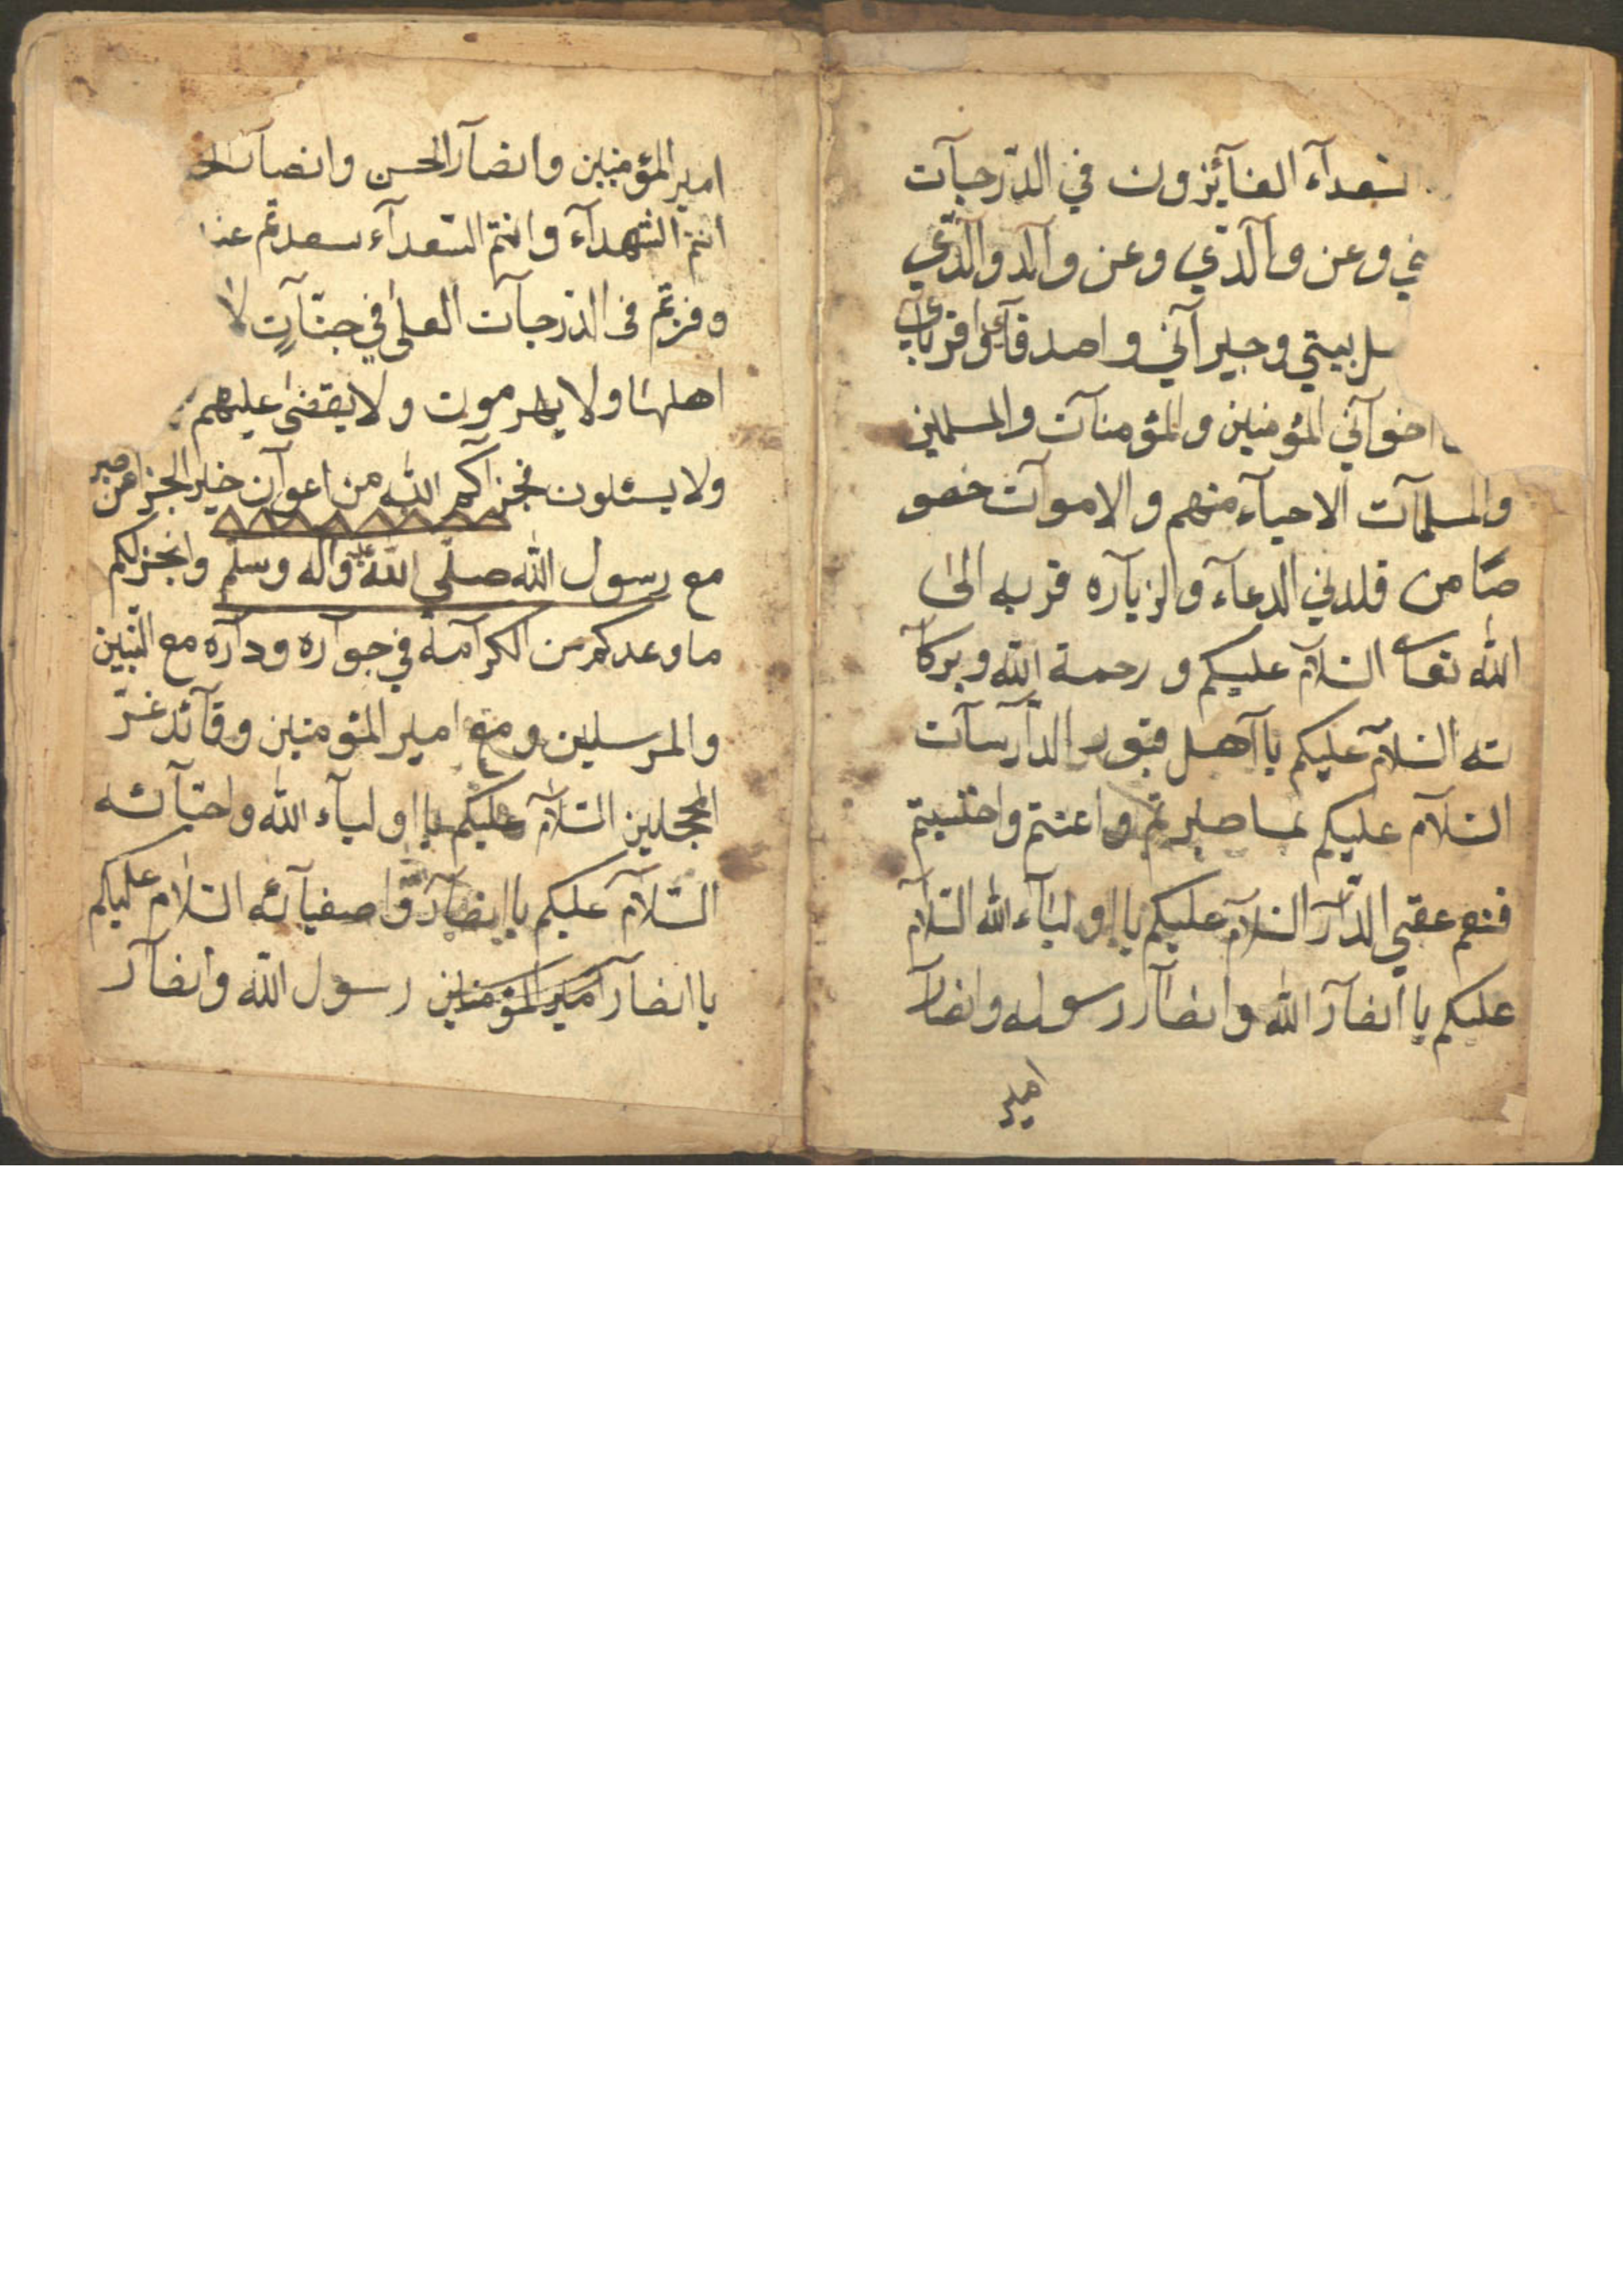 سعدآء الفآئزون في الدّرجآت
ني وعن وآلدّي وعن وآلد وآلدّي
بيتي وجيرآني واصدقآئي واقربآئي
اخوآني المؤمنين والمؤمنآت والمسلمين
والمسلمآت الاحيآء منهم والاموآت خصو
صًا من قلدني الدعآء والزيآره قربه الىٰ
الله تعا السّلآم عليكم ورحمة الله وبركآ
ته السّلآم عليكم يا آهل قبور الدآرسآت
السّلآم عليكم بما صبرتم
فنعم عقبي الدّآر السّلآم عليكم يا اوليآء الله السّلآم
عليكم يا انصآر الله وانصآر رسوله وانصآر
امير
امير المؤمنين وانصآر الحسن وانصآر
انتم الشهدآء وانتم السّعدآء سعدتم
وفزتم فى الدّرجآت العلىٰ في جنّآتٍ لا
اهلها ولا يهرموت ولا يقضىٰ عليهم
ولا يسئلون فجزآكم الله من اعوآن خير الجزآ من صبر
مع رسول الله صلّي الله عليه وآله وسلّم وانجز لكم
ما وعدكم من الكرآمه في جوآره ودآره مع النّبيّين
والمرسلين ومع امير المؤمنين وقآئد غرّ
المحجلين السّلآم عليكم يا اوليآء الله واحبّآئه
السّلآم عليكم يا انصآر واصفيآئه السّلآم عليكم
يا انصآر امير المؤمنين رسول الله وانصآر